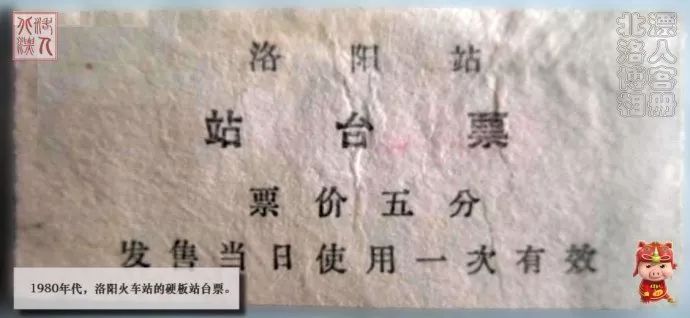 洛阳站
站台票
票价五分
发售当日使用一次有效
1980年代，洛阳火车站的硬板站台票。
北漂
洛人
博客
相册